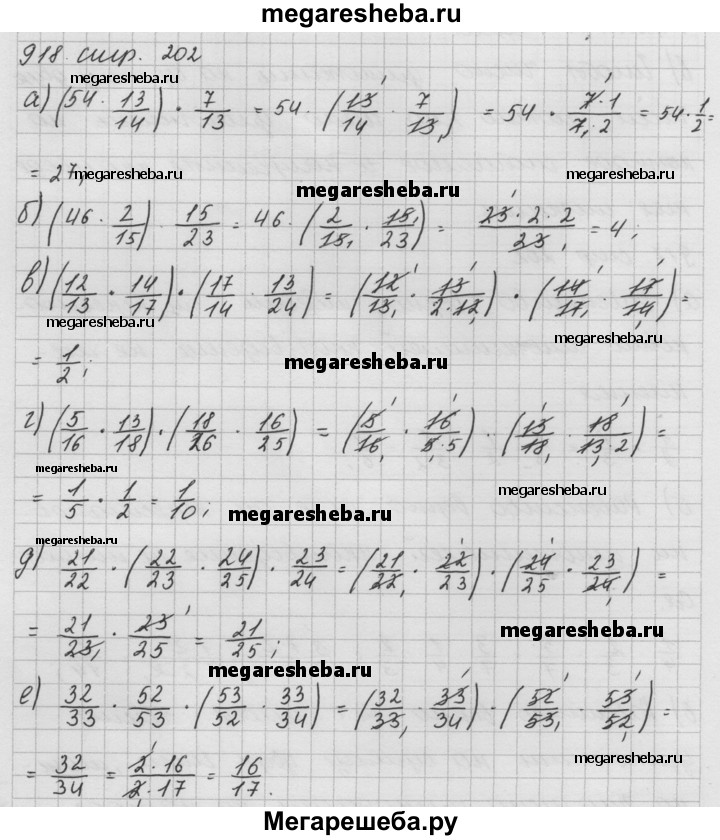 megaresheba.ru
918 стр. 202
megaresheba.ru
а) (54 · 13/14) · 7/13 = 54 · (13/14 · 7/13) = 54 · 7·1/7·2 = 54 · 1/2 =
= 27;
megaresheba.ru megaresheba.ru
megaresheba.ru
б) (46 · 2/15) · 15/23 = 46 · (2/15 · 15/23) = 23·2·2/23 = 4;
в) (12/13 · 14/17) · (17/14 · 13/24) = (12/13 · 13/2·12) · (14/17 · 17/14) =
megaresheba.ru
megaresheba.ru
= 1/2;
megaresheba.ru
г) (5/16 · 13/18) · (18/26 · 16/25) = (5/16 · 16/5·5) · (13/18 · 18/13·2) =
megaresheba.ru
= 1/5 · 1/2 = 1/10;
megaresheba.ru
megaresheba.ru
megaresheba.ru
д) 21/22 · (22/23 · 24/25) · 23/24 = (21/22 · 22/23) · (24/25 · 23/24) =
= 21/23 · 23/25 = 21/25;
megaresheba.ru
megaresheba.ru
е) 32/33 · 52/53 · (53/52 · 33/34) = (32/33 · 33/34) · (52/53 · 53/52) =
= 32/34 = 2·16/2·17 = 16/17.
megaresheba.ru
Мегарешеба.ру